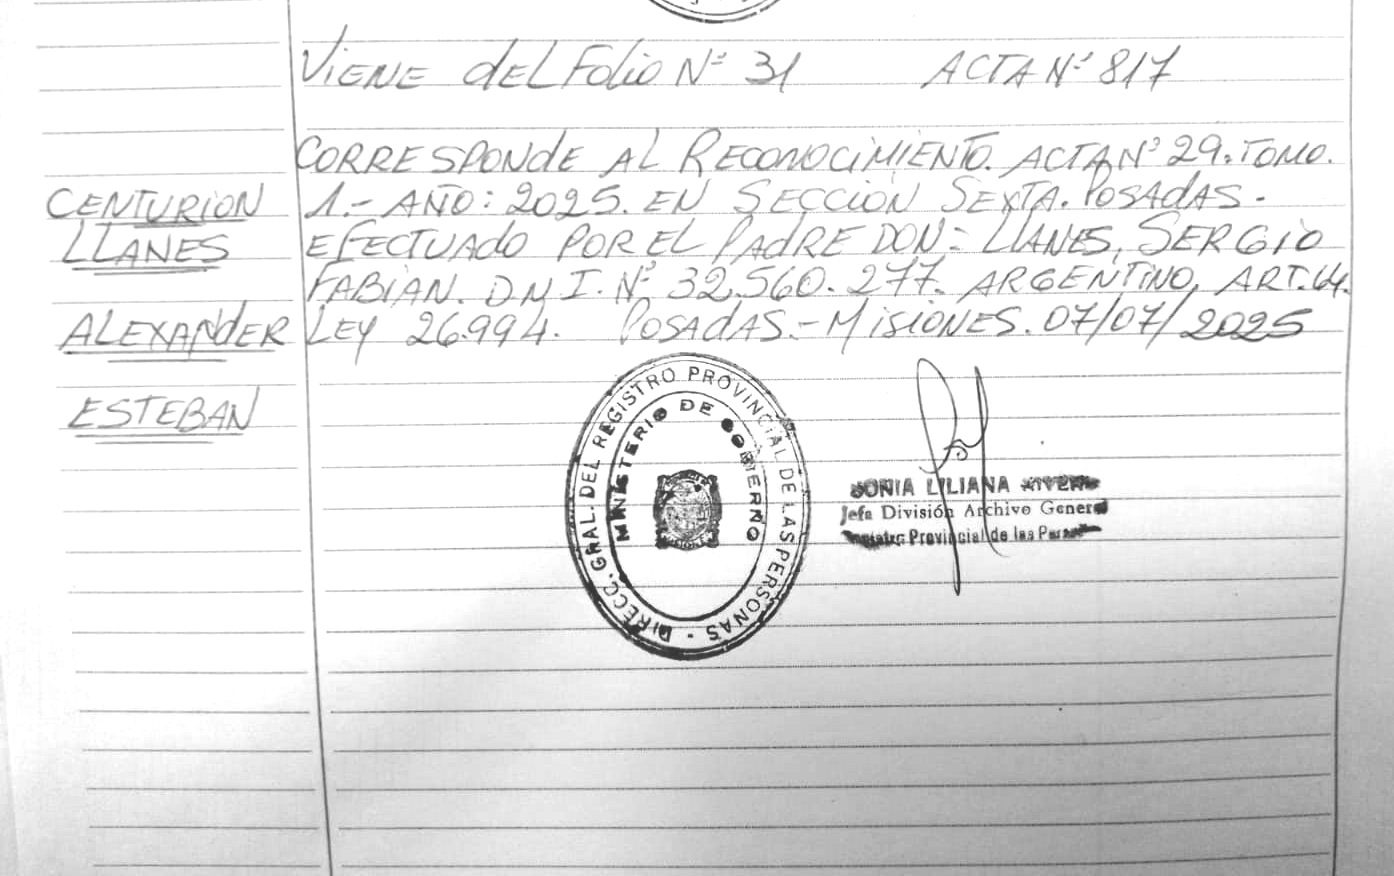 Viene del Folio Nº 31 ACTA Nº 817
CORRESPONDE AL RECONOCIMIENTO. ACTA Nº 29. TOMO.
CENTURION 1.- AÑO: 2025. EN SECCIÓN SEXTA. POSADAS.-
LLANES EFECTUADO POR EL PADRE DON: LLANES, SERGIO
FABIAN. D.N.I. Nº 32.560.277. ARGENTINO, ART. 64.
ALEXANDER LEY 26.994. POSADAS.- MISIONES. 07/07/2025
ESTEBAN
DIRECC. GRAL. DEL REGISTRO PROVINCIAL DE LAS PERSONAS -
MINISTERIO DE GOBIERNO
MISIONES
SONIA LILIANA
Jefa División Archivo General
Provincial de las